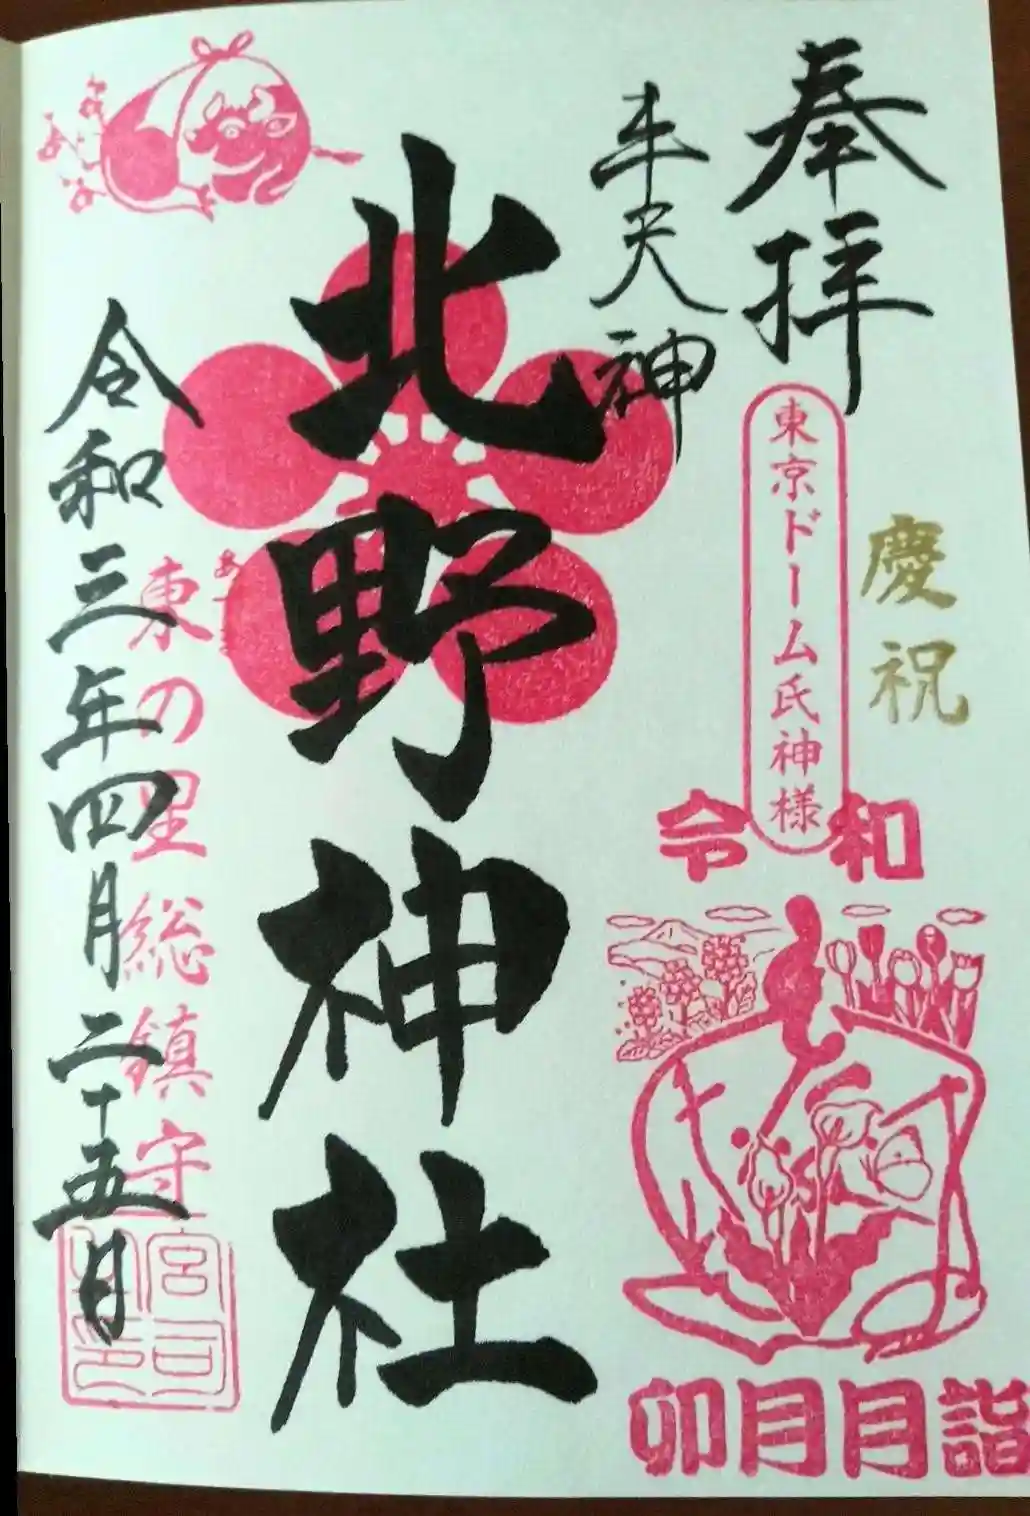 奉拝
慶祝
東京ドーム氏神様
令和
卯月月詣
牛天神
北野神社
東の里総鎮守
令和三年四月二十五日
宮司